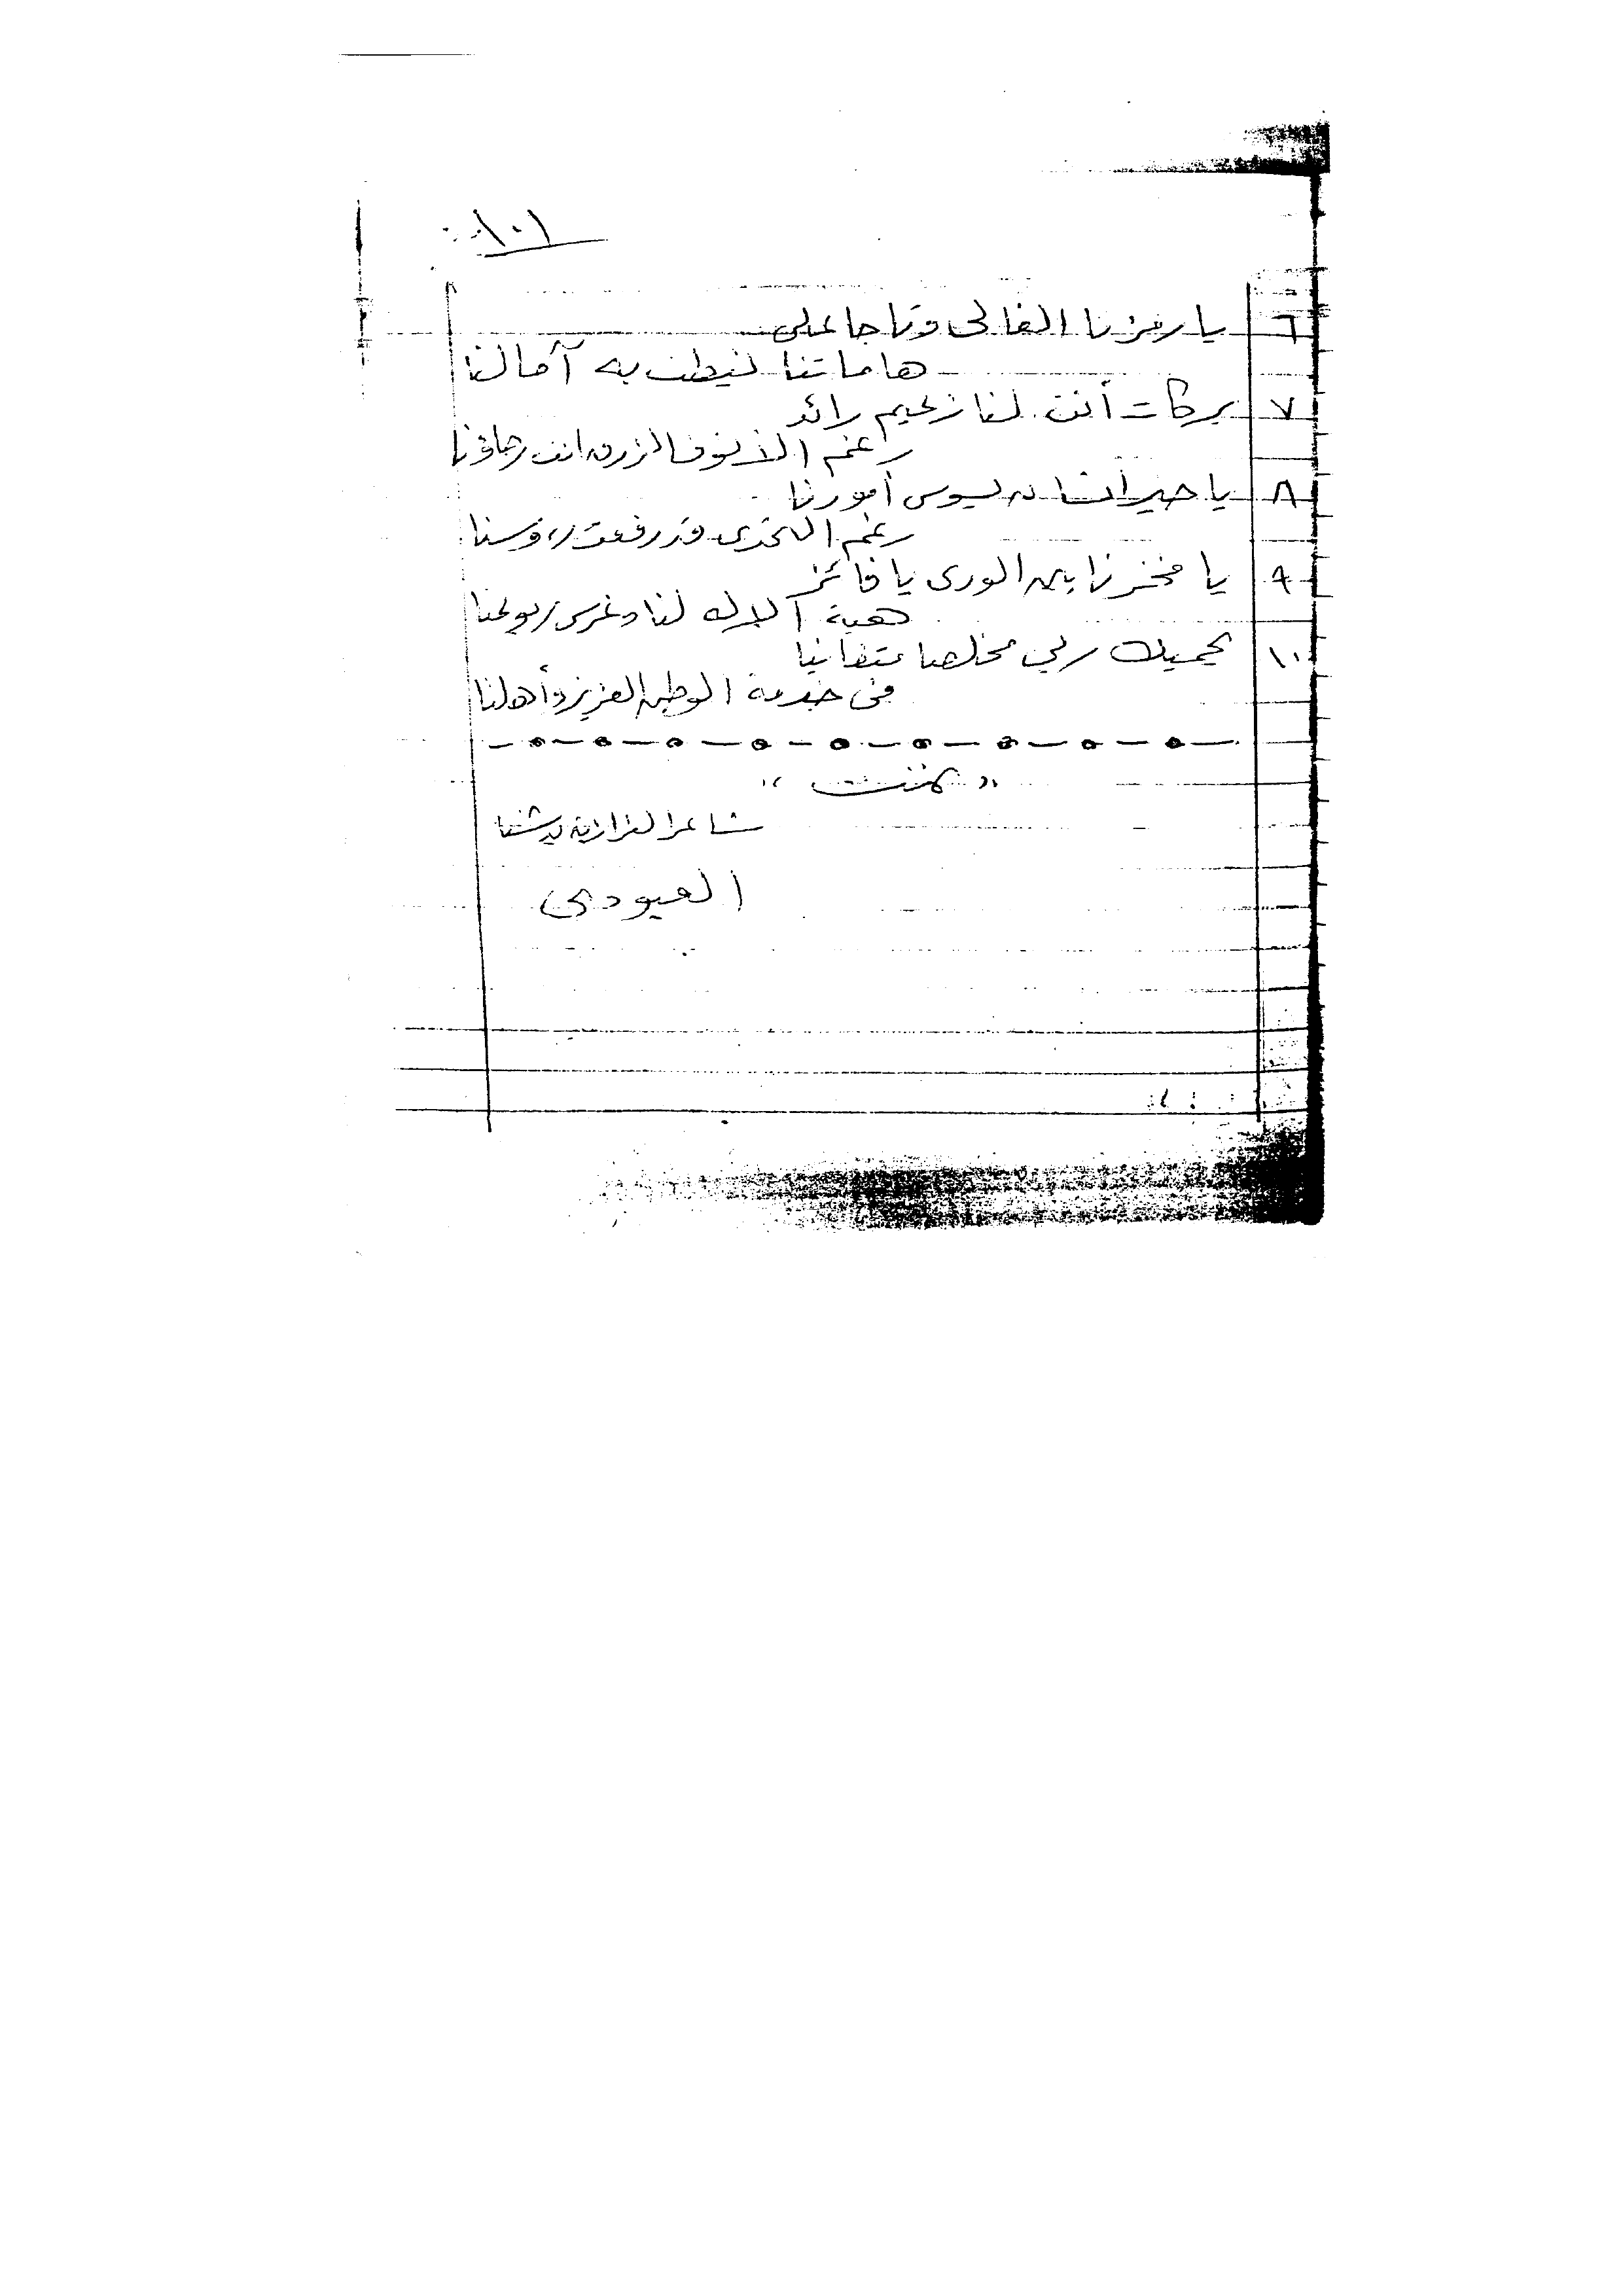 ١٠١
٦ يا رمزنا الغالى وتاجا على
هاماتنا نيطت به آمالنا
٧ بركات أنت لنا زعيم رائد
رغم الأنوف الزرق انت رجاؤنا
٨ يا خير انسان يسوس أمورنا
رغم التحدى قد رفعت رؤوسنا
٩ يا فخرنا بين الورى يا فائز
هبة الاله لنا وغرس ربوعنا
١٠ يحميك ربي مخلصا متفانيا
فى خدمة الوطن العزيز وأهلنا
" تمت "
شاعر الفرازين
العبودي